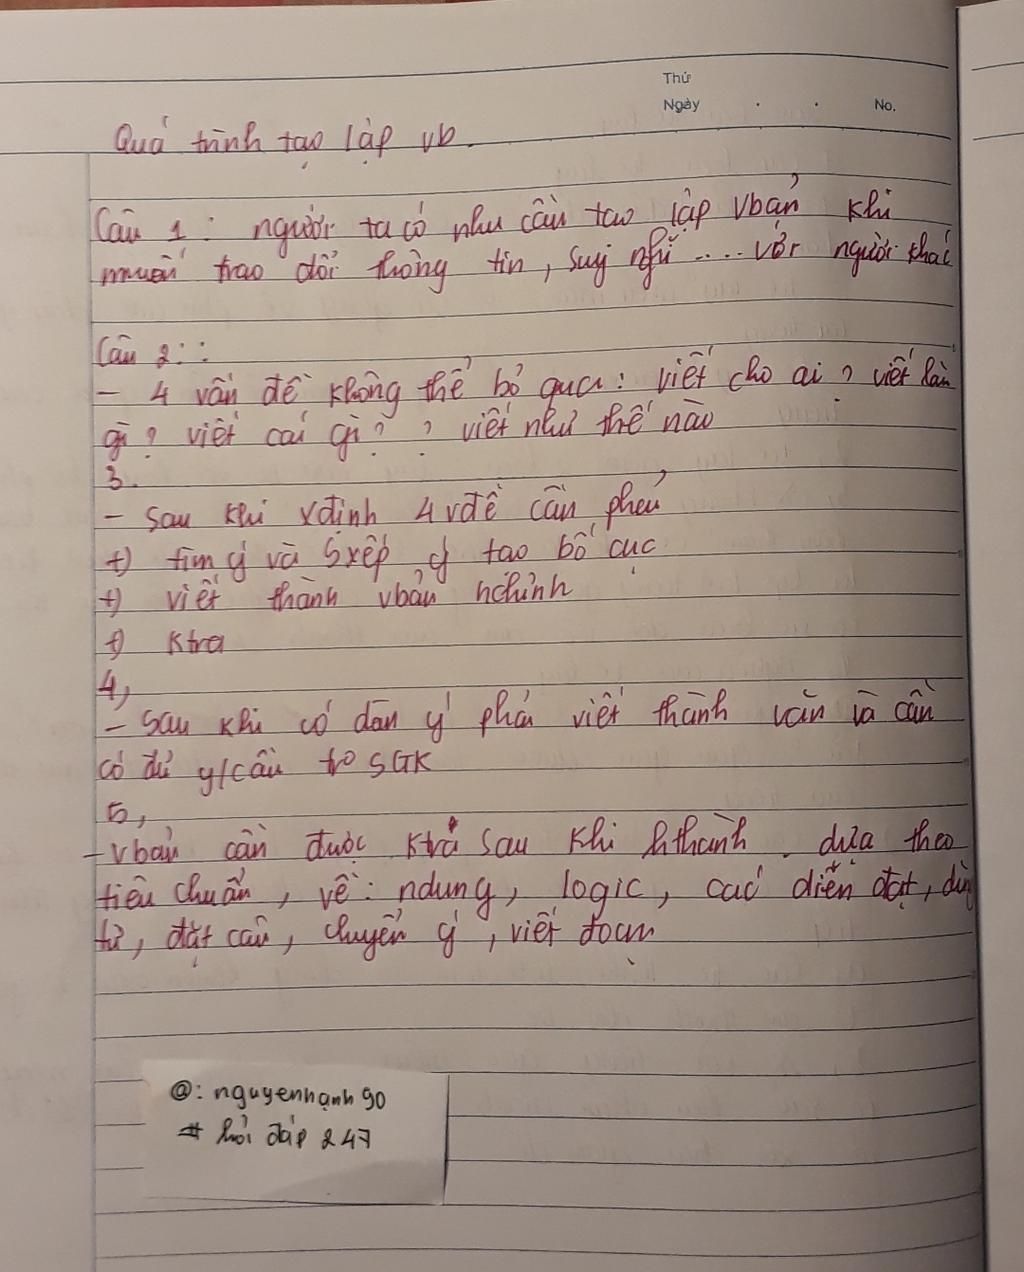 Thứ
Ngày . . No.
Quá trình tạo lập vb.
Câu 1: người ta có nhu cầu tạo lập vbản khi
muốn trao dổi thông tin, suy nghĩ .... với người khác
Câu 2: :
- 4 vấn đề không thể bỏ qua: viết cho ai? viết làm
gì? viết cái gì? ? viết như thế nào
3.
- Sau khi xđịnh 4 vđề cần phải
+) tìm ý và sxếp ý tạo bố cục
+) viết thành vbản hchỉnh
+) Ktra
4,
- Sau khi có dàn ý phải viết thành văn và cần
có đủ y/cầu tr SGK
5,
- Vbản cần được Ktra sau khi hthành. dựa theo
tiêu chuẩn, về: ndung, logic, các diễn đạt, dùng
từ, đặt câu, chuyển ý, viết đoạn
@: nguyenhạnh90
# hỏi đáp 247